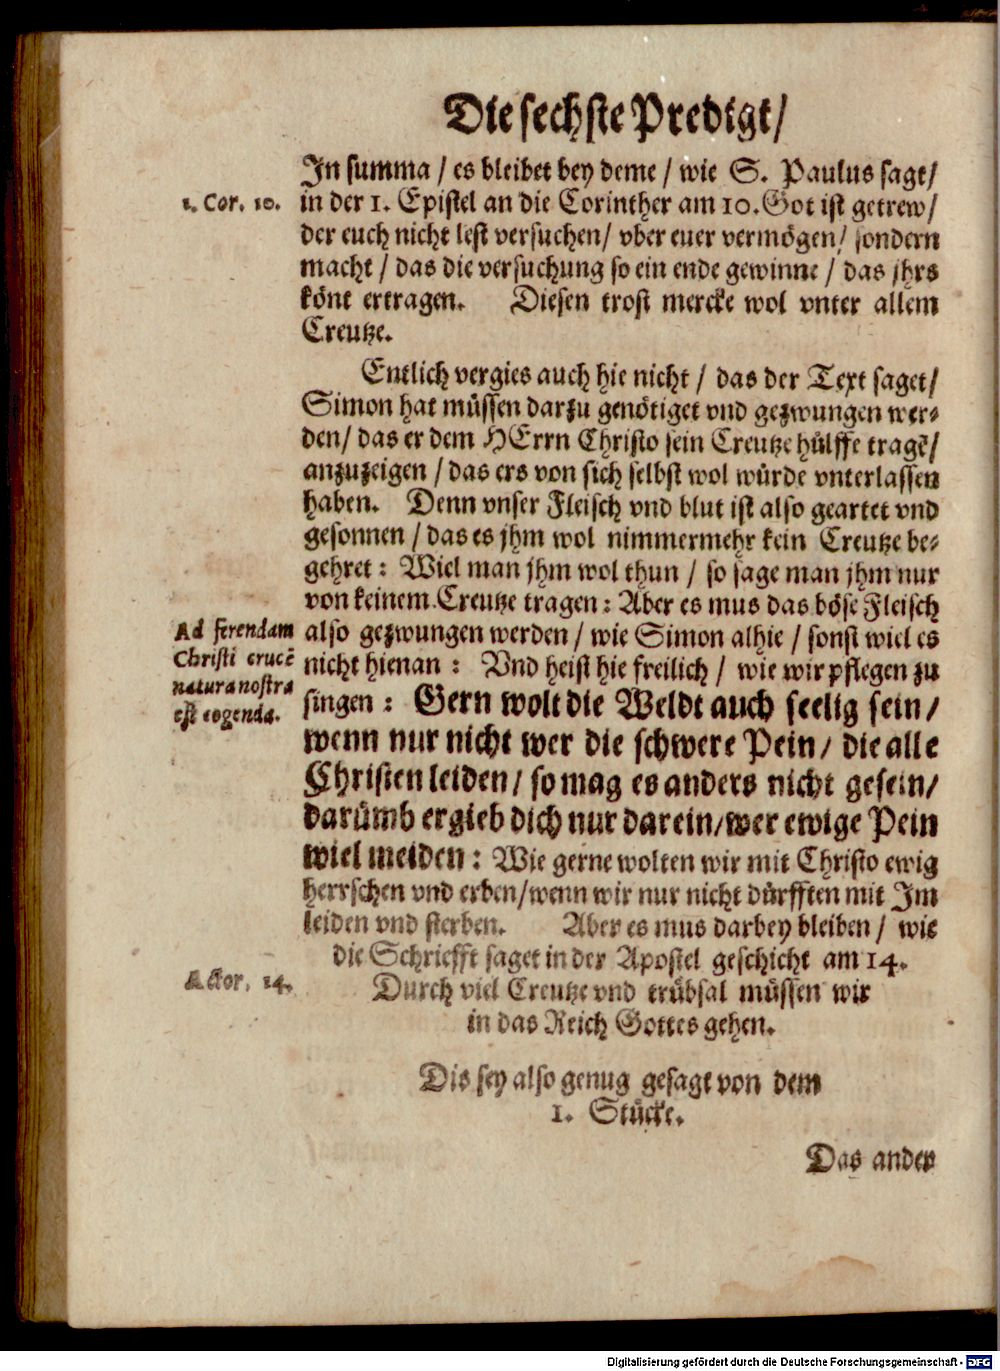 Die sechste Predigt/
In summa / es bleibet bey deme / wie S. Paulus sagt/
1. Cor. 10.
in der 1. Epistel an die Corinther am 10. Got ist getrew/
der euch nicht lest versuchen/ vber euer vermögen/ sondern
macht / das die versuchung so ein ende gewinne / das jhrs
könt ertragen. Diesen trost mercke wol vnter allem
Creutze.
Entlich vergies auch hie nicht / das der Text saget/
Simon hat müssen darzu genötiget vnd gezwungen wer-
den/ das er dem HErrn Christo sein Creutze hülffe tragē/
anzuzeigen / das ers von sich selbst wol würde vnterlassen
haben. Denn vnser Fleisch vnd blut ist also geartet vnd
gesonnen / das es jhm wol nimmermehr kein Creutze be-
gehret: Wiel man jhm wol thun / so sage man jhm nur
von keinem Creutze tragen: Aber es mus das böse Fleisch
Ad ferendam
Christi crucē
natura nostra
est cogenda.
also gezwungen werden / wie Simon alhie / sonst wiel es
nicht hienan: Vnd heist hie freilich / wie wir pflegen zu
singen: Gern wolt die Weldt auch seelig sein/
wenn nur nicht wer die schwere Pein/ die alle
Christen leiden/ so mag es anders nicht gesein/
darümb ergieb dich nur darein/wer ewige Pein
wiel meiden: Wie gerne wolten wir mit Christo ewig
herrschen vnd erben/wenn wir nur nicht dürfften mit Im
leiden vnd sterben. Aber es mus darbey bleiben / wie
die Schriefft saget in der Apostel geschicht am 14.
Actor. 14.
Durch viel Creutze vnd trübsal müssen wir
in das Reich Gottes gehen.
Dis sey also genug gesagt von dem
1. Stücke.
Das ander
Digitalisierung gefördert durch die Deutsche Forschungsgemeinschaft - DFG